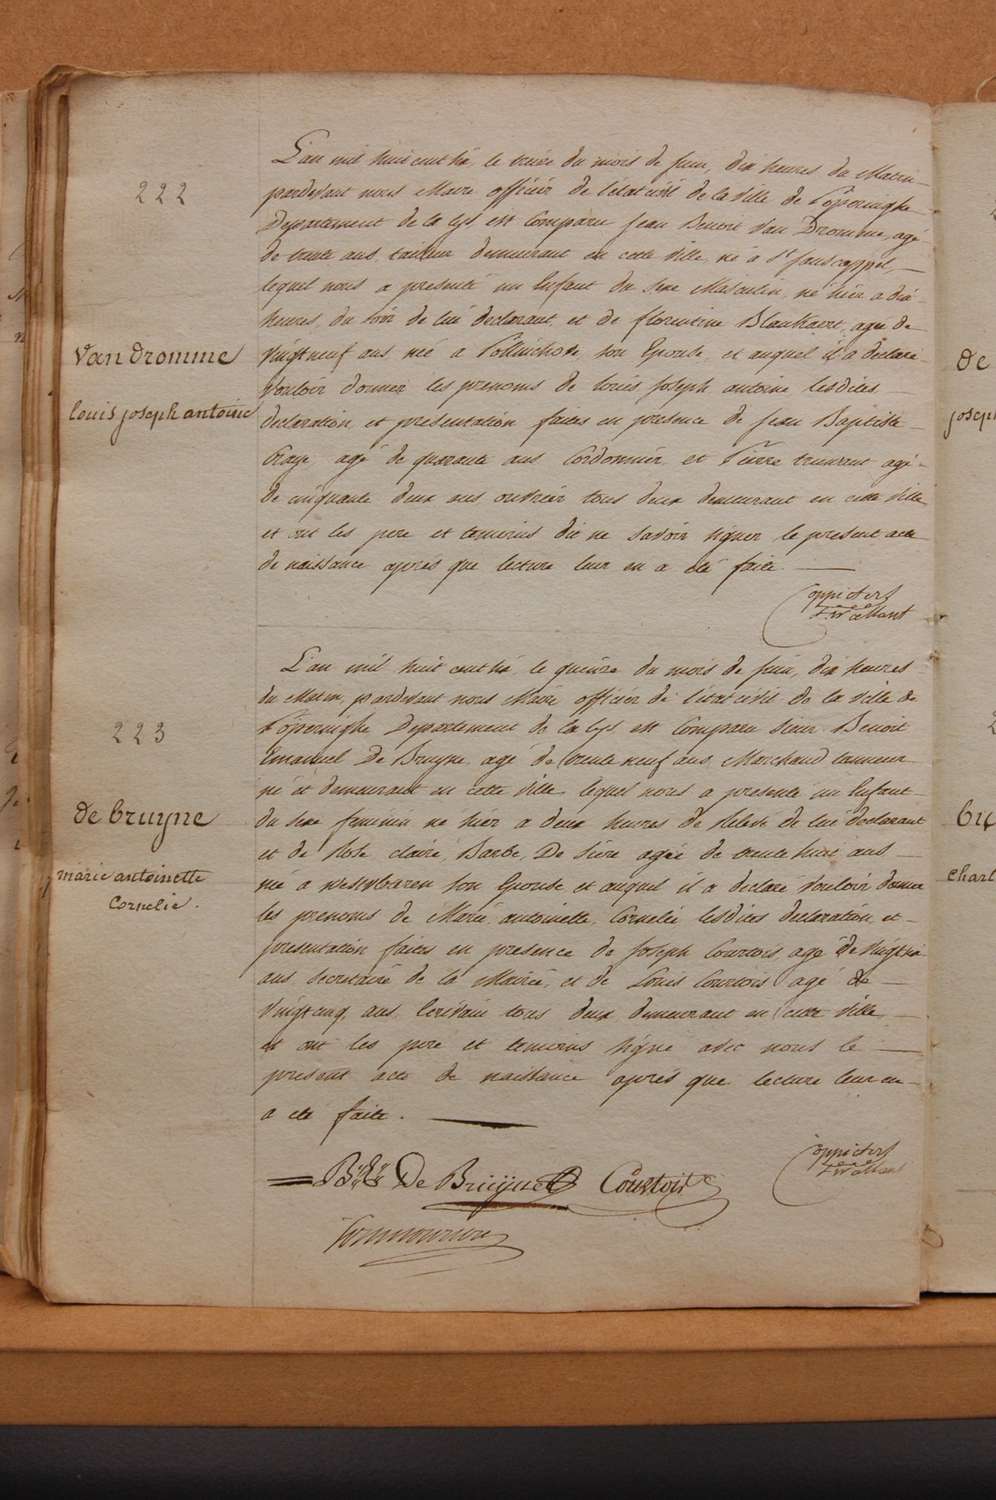 222
Van Dromme
louis joseph antoine
L'an mil huit cent dix le treize du mois de Juin, dix heures du Matin
pardevant nous Maire officier de l'état civil de la Ville de Poperinghe
Departement de la Lys est Comparu Jean Benoit Van Dromme, agé
de trente ans, tanneur demeurant en cette Ville, né à St Jans cappel,
lequel nous a presenté un Enfant du sexe Masculin, né hier a dix
heures du soir de lui declarant et de florentine Blanckaert, agée de
Vingt neuf ans, née a Pollinchove, son Epouse, et auquel il a declaré
Vouloir donner les prenoms de louis Joseph antoine lesdites
declaration et présentation faites en presence de Jean Baptiste
agé de quarante ans Cordonnier et Pierre agé
de cinquante deux ans ouvrier tous deux demeurant en cette Ville
et ont les pere et temoins dit ne savoir signer le present acte
de naissance après que lecture leur en a été faite
223
de bruyne
marie antoinette
Cornelie.
L'an mil huit cent dix le quinze du mois de Juin, dix heures
du Matin, pardevant nous Maire officier de l'état civil de la Ville de
Poperinghe Departement de la Lys est Comparu Sieur Benoit
Emanuel De Bruyne agé de trente neuf ans, Marchand tanneur
né et demeurant en cette Ville lequel nous a presenté un Enfant
du sexe feminin né hier a deux heures de de lui declarant
et de Rose claire, Barbe, De agée de trente huit ans
né a son Epouse et auquel il a declaré Vouloir donner
les prenoms de Marie, antoinette, Cornelie lesdites declaration et
presentation faites en presence de Joseph Courtois agé de
ans Secretaire de la Mairie, et de Louis Courtois agé de
Vingt cinq ans, Ecrivain tous deux demeurant en cette Ville
et ont les pere et temoins signé avec nous le
present acte de naissance après que lecture leur en
a été faite.
De Bruyne Courtois
de
joseph
charl